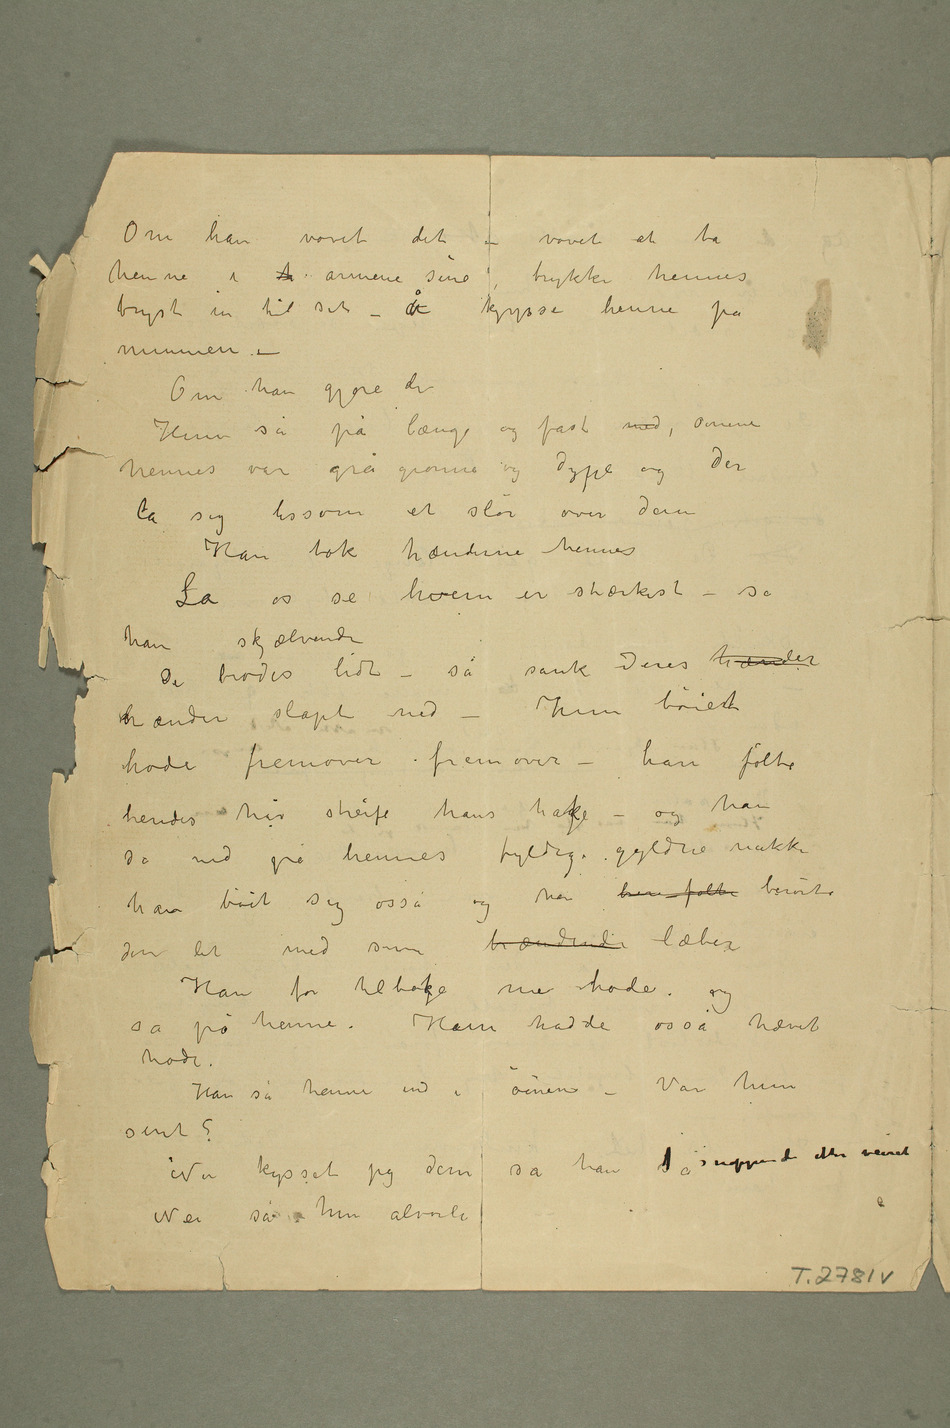 Om han vovet det – vovet at ta
henne i armene sine, trykke hennes
bryst in til set – å kyysse henne på
munnen –
Om han gjore de
Hun så på længe og fast med, öinene
hennes var grå grønne og dype og der
la sig lissom et slör over dem
Han tok hænderne hennes
La os se hvem er stærkest – sa
han skjælvende
De brödes lidt – så sank Deres hænder
hænder slapt ned – Hun böiet
hode fremover fremover – han fölte
hendes hår streife hans hake – og han
så ned på hennes fyldige gyldne nakke
han böit sig osså og han berörte
den let med sine brændende læber
Han for tilbake me hode. og
sa på henne. Hun hadde osså hævet
hode.
Han så henne ind i öinene – Var hun
sint?
Nu kysset jeg dem sa han så snappende etter veiret
Nei så hun alvorli
T.2781v